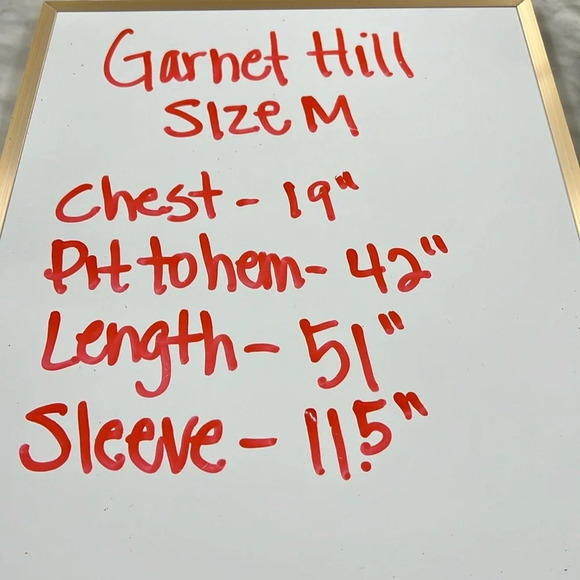 Garnet Hill
Size M
Chest - 19"
Pit to hem - 42"
Length - 51"
Sleeve - 11.5"